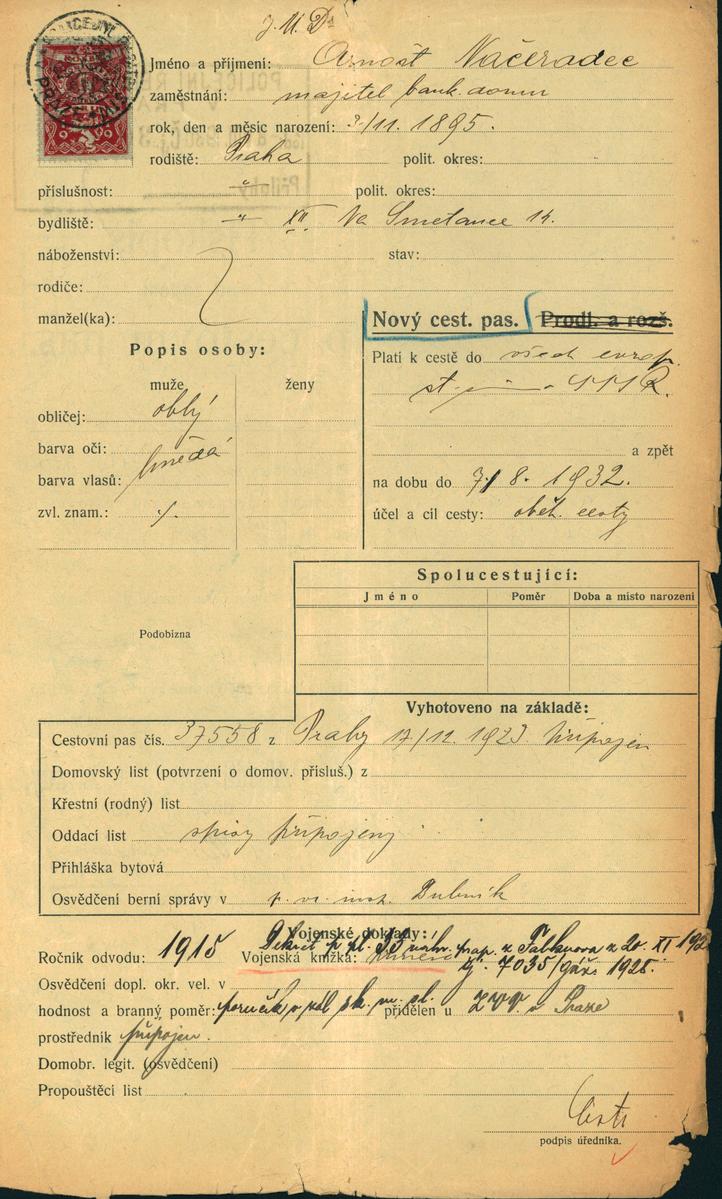 J. U. Dr
Jméno a příjmení: Arnošt Načeradec
zaměstnání: majitel bank. domu
rok, den a měsíc narození: 3/11. 1895.
rodiště: Praha polit. okres:
příslušnost: -"- polit. okres:
bydliště: -"- XII Na Smetance 14.
náboženství: stav:
rodiče:
manžel(ka):
Nový cest. pas. Prodl. a rozš.
Popis osoby:
Platí k cestě do všech evrop.
muže ženy
st
obličej: oblý
barva očí: hnědá
a zpět
barva vlasů:
na dobu do 7/8. 1932.
zvl. znam.: ./.
účel a cíl cesty: obch. cesty
Spolucestující:
Jméno Poměr Doba a místo narození
Podobizna
Vyhotoveno na základě:
Cestovní pas čís. 37558 z Prahy 17/12. 1923 připojen
Domovský list (potvrzení o domov. přísluš.) z
Křestní (rodný) list
Oddací list spisy připojeny
Přihláška bytová
Osvědčení berní správy v Dubník
Vojenské doklady:
Ročník odvodu: 1915 Vojenská knížka: Dekret p. pl. 33 z 20. XI 192
č. 7035/ 1925.
Osvědčení dopl. okr. vel. v
hodnost a branný poměr: poručík v zál. přidělen u ZVV. v Praze
prostředník připojen.
Domobr. legit. (osvědčení)
Propouštěcí list
podpis úředníka.